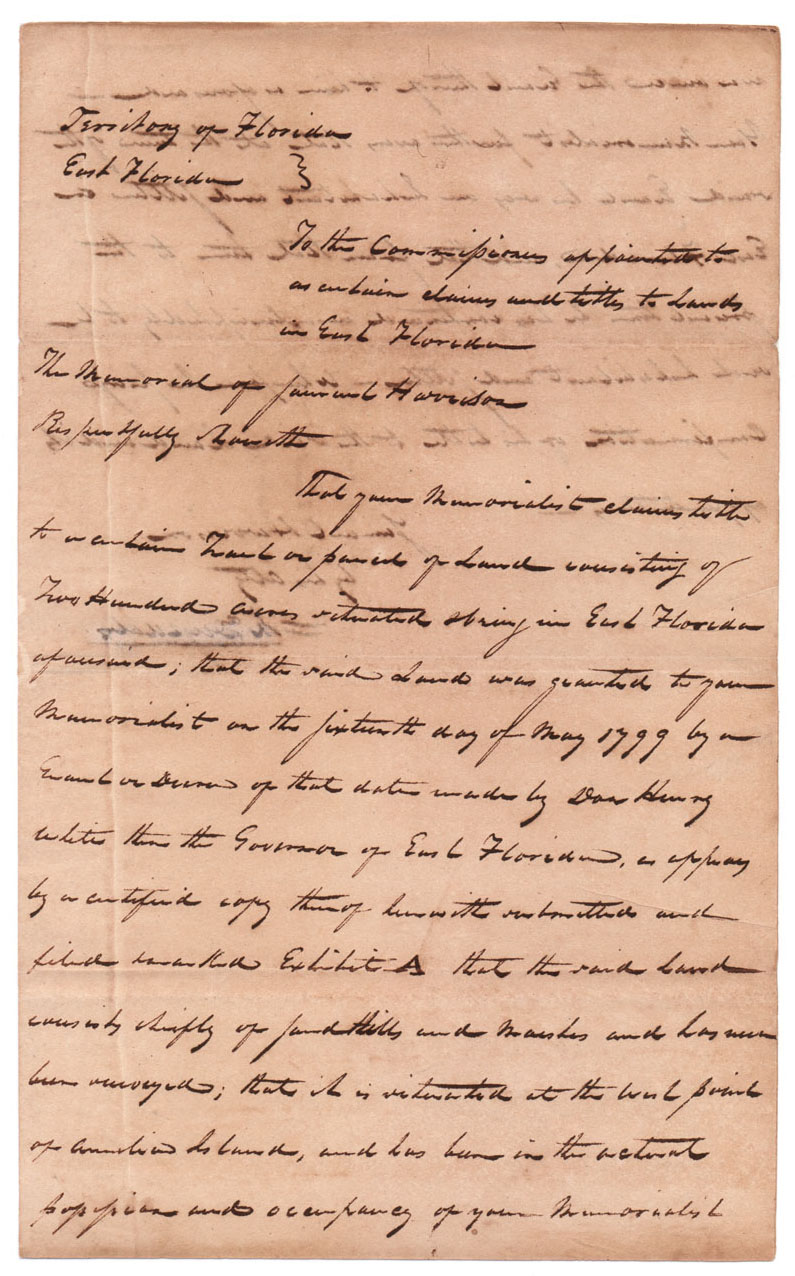 Territory of Florida
East Florida }
To the Commissioners appointed to
ascertain claims and titles to Lands
in East Florida
The Memorial of Samuel Harrison
Respectfully Sheweth
That your Memorialist claims title
to a certain Tract or parcel of Land consisting of
Two Hundred acres situated & being in East Florida
aforesaid; that the said Land was granted to your
Memorialist on the sixteenth day of May 1799 by a
Grant or Decree of that date made by Don Henry
White then the Governor of East Florida, as appears
by a certified copy thereof herewith submitted and
filed marked Exhibit A that the said Land
consists chiefly of Sand Hills and Marshes and has never
been surveyed; that it is situated at the west point
of Amelia Island, and has been in the actual
possession and occupancy of your Memorialist